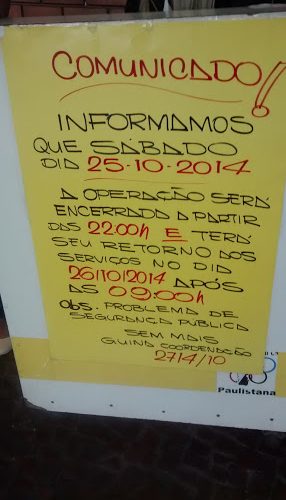 COMUNICADO!
INFORMAMOS
QUE SÁBADO
DIA 25-10-2014
A OPERAÇÃO SERÁ
ENCERRADA A PARTIR
DAS 22:00h E TERÁ
SEU RETORNO DOS
SERVIÇOS NO DIA
26/10/2014 APÓS
AS 09:00h
OBS. PROBLEMA DE
SEGURANÇA PUBLICA
SEM MAIS
GUINA COORDENAÇÃO
2714/10
Paulistana